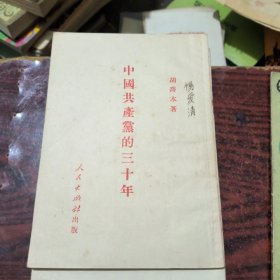 楊愛清
胡喬木著
中國共產黨的三十年
人民出版社出版